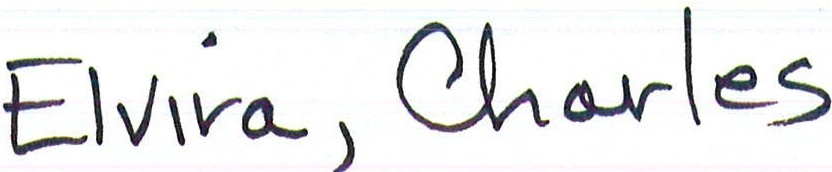 Elvira, Charles